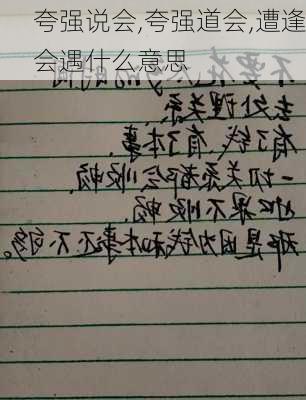 夸强说会,夸强道会,遭逢
会遇什么意思
去处理关系,
有了钱,有了本事,
一切关系都会顺畅,
如果不顺畅,
那是因为钱和本事还不够。